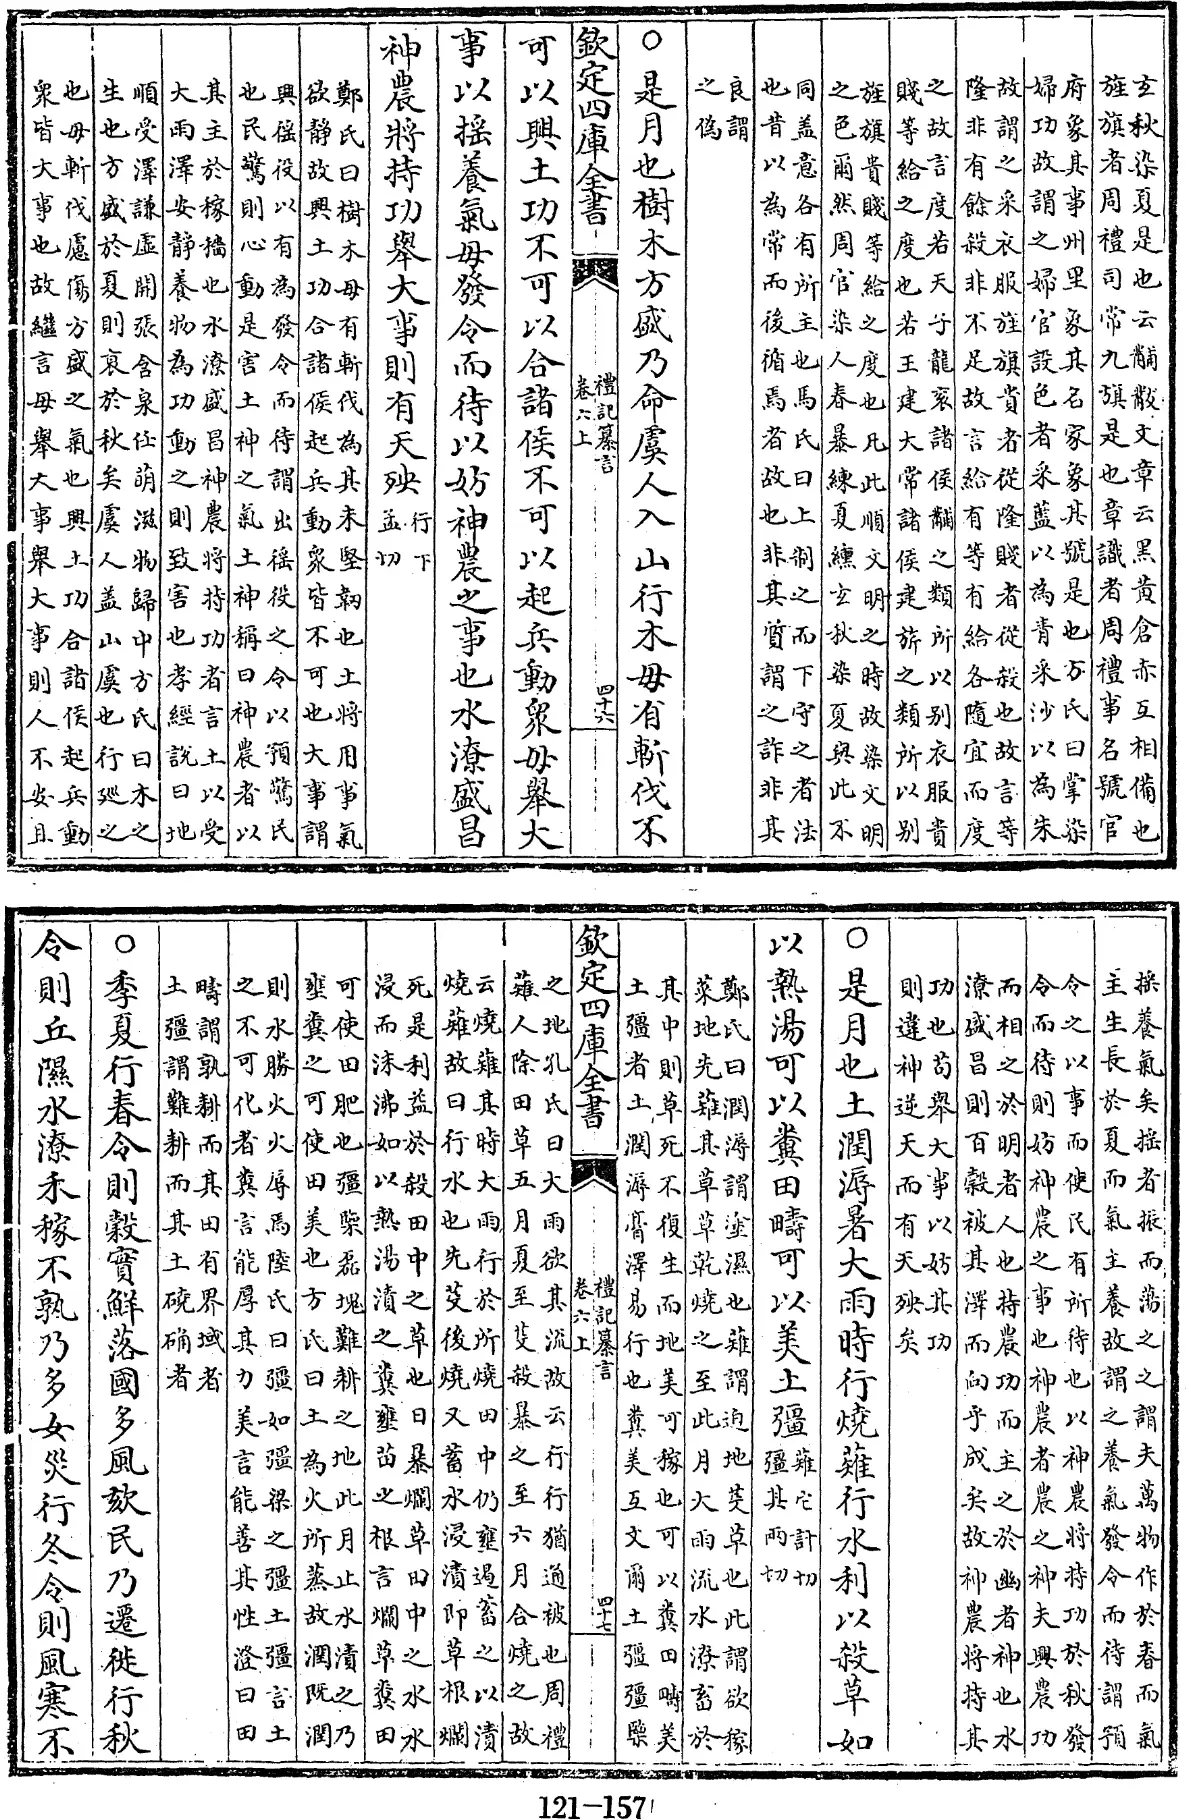 玄秋染夏是也云黼黻文章云黑黃倉赤互相備也
旌旗者周禮司常九旗是也章識者周禮事名號官
府象其事州里象其名家象其號是也方氏曰掌染
婦功故謂之婦官設色者采藍以為青采沙以為朱
故謂之采衣服旌旗貴者從隆賤者從殺也故言等
隆非有餘殺非不足故言給有等有給各隨宜而度
之故言度若天子龍衮諸侯黼之類所以别衣服貴
賤等給之度也若王建大常諸侯建旂之類所以别
旌旗貴賤等給之度也凡此順文明之時故染文明
之色爾然周官染人春暴練夏纁玄秋染夏與此不
同盖意各有所主也馬氏曰上制之而下守之者法
也昔以為常而後循焉者故也非其質謂之詐非其
良謂
之偽
○是月也樹木方盛乃命虞人入山行木毋有斬伐不
欽定四庫全書
禮記纂言
卷六上
四十六
可以興土功不可以合諸侯不可以起兵動衆毋舉大
事以揺養氣毋發令而待以妨神農之事也水潦盛昌
神農將持功舉大事則有天殃行下
孟切
鄭氏曰樹木毋有斬伐為其未堅韌也土將用事氣
欲靜故興土功合諸侯起兵動衆皆不可也大事謂
興徭役以有為發令而待謂出徭役之令以預驚民
也民驚則心動是害土神之氣土神稱曰神農者以
其主於稼穡也水潦盛昌神農將持功者言土以受
大雨澤安靜養物為功動之則致害也孝經説曰地
順受澤謙虚開張含泉任萌滋物歸中方氏曰木之
生也方盛於夏則衰於秋矣虞人盖山虞也行廵之
也毋斬伐慮傷方盛之氣也興土功合諸侯起兵動
衆皆大事也故繼言毋舉大事舉大事則人不安且
揺養氣矣揺者振而蕩之之謂夫萬物作於春而氣
主生長於夏而氣主養故謂之養氣發令而待謂預
令之以事而使民有所待也以神農將持功於秋發
令而待則妨神農之事也神農者農之神夫興農功
而相之於明者人也持農功而主之於幽者神也水
潦盛昌則百穀被其澤而向乎成矣故神農將持其
功也苟舉大事以妨其功
則違神逆天而有天殃矣
○是月也土潤溽暑大雨時行燒薙行水利以殺草如
以熱湯可以糞田疇可以美土彊薙它計切
彊其两切
鄭氏曰潤溽謂塗濕也薙謂迫地芟草也此謂欲稼
萊地先薙其草草乾燒之至此月大雨流水潦畜於
其中則草死不復生而地美可稼也可以糞田疇美
土彊者土潤溽膏澤易行也糞美互文爾土彊彊㯺
欽定四庫全書
禮記纂言
卷六上
四十七
之地孔氏曰大雨欲其流故云行行猶通被也周禮
薙人除田草五月夏至芟殺暴之至六月合燒之故
云燒薙其時大雨行於所燒田中仍壅遏蓄之以漬
燒薙故曰行水也先芟後燒又蓄水浸漬即草根爛
死是利益於殺田中之草也日暴爛草田中之水水
浸而沫沸如以熟湯漬之糞壅苗之根言爛草糞田
可使田肥也彊㯺磊塊難耕之地此月止水漬之乃
壅糞之可使田美也方氏曰土為火所蒸故潤既潤
則水勝火火辱焉陸氏曰彊如彊梁之彊土彊言土
之不可化者糞言能厚其力美言能善其性澄曰田
疇謂孰耕而其田有界域者
土彊謂難耕而其土磽确者
○季夏行春令則穀實鮮落國多風欬民乃遷徙行秋
令則丘隰水潦禾稼不孰乃多女災行冬令則風寒不
121-157